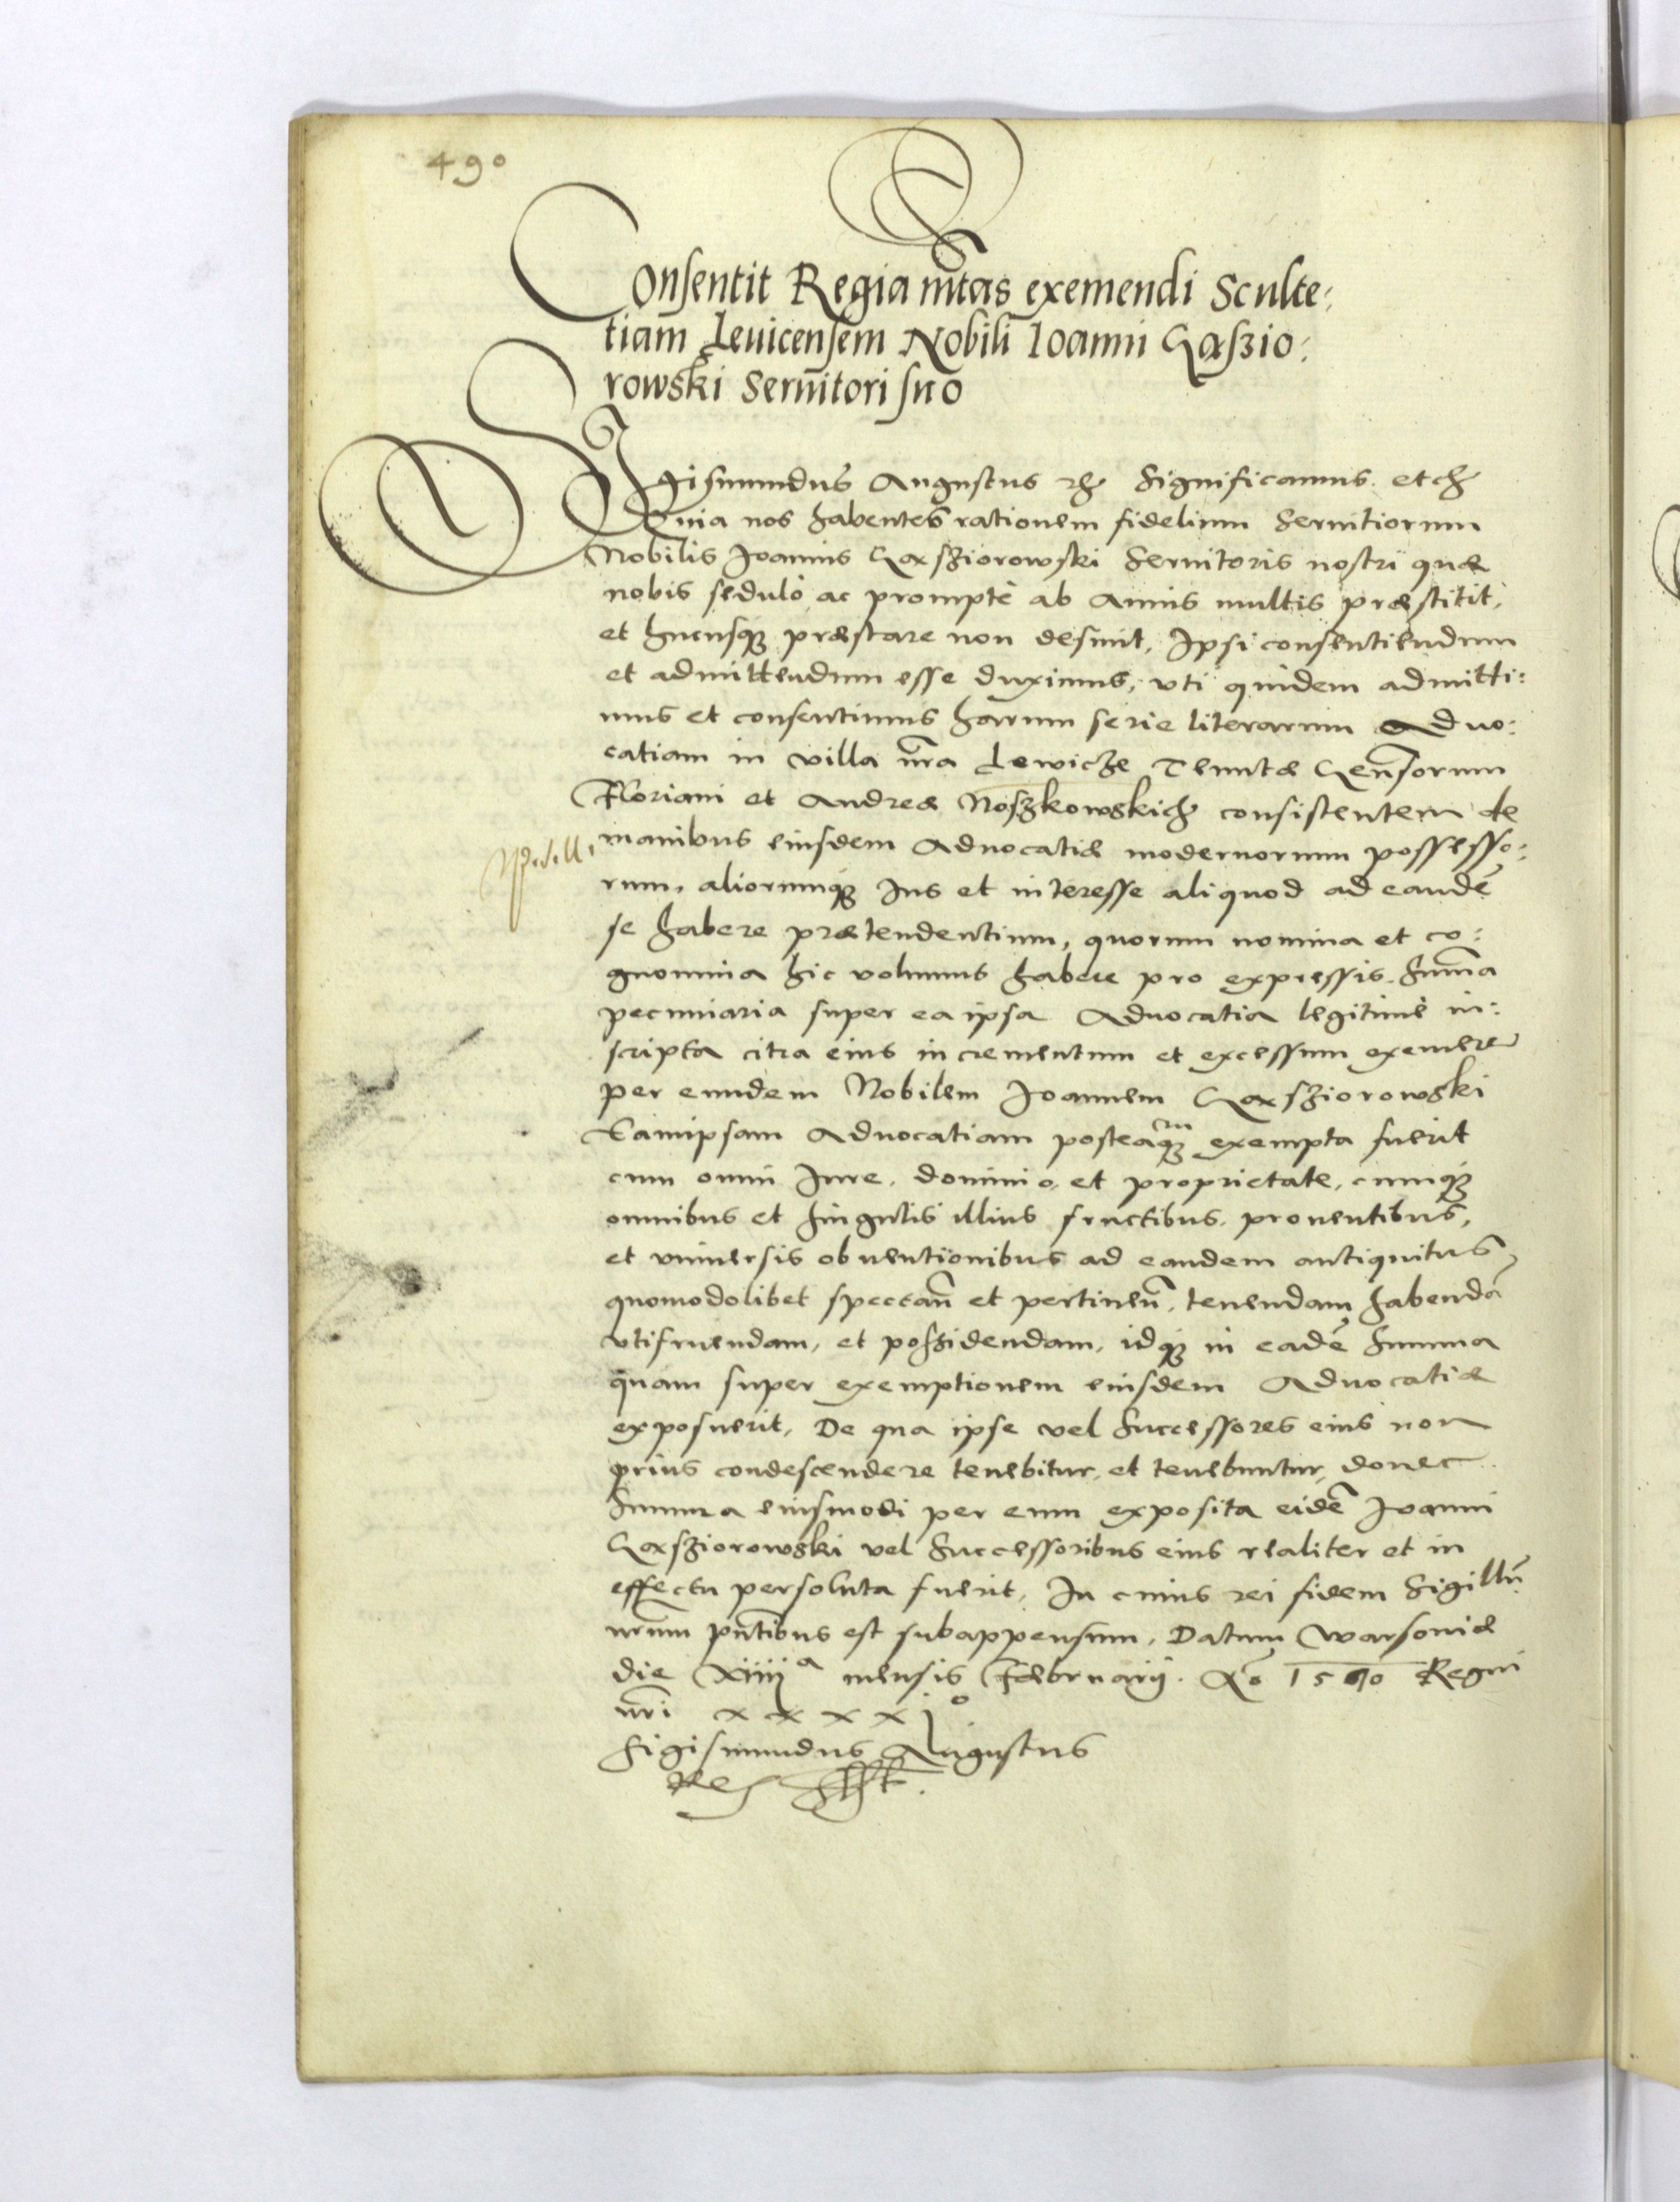 490
Consentit Regia mtas exemendi Sculte:
tiam Leuicensem Nobili Ioanni Gąszio:
rowski Seruitori suo
Sigismundus Augustus &c Significamus. etc
Quia nos habentes rationem fidelium Seruitiorum
Nobilis Joannis Gąsziorowski Seruitoris nostri quæ
nobis sedulò ac promptè ab Annis multis præstitit,
et hucusq præstare non desinit, Ipsi consentiendum
et admittendum esse duximus, vti quidem admitti:
mus et consentimus harum serie literarum Aduo:
catiam in villa nra Lewicze Tenutæ Gensorum
Floriani et Andreæ Noszkowskich consistentem de
manibus eiusdem Aduocatiæ modernorum possesso:
rum, aliorumq Ius et interesse aliquod ad eandē
se habere prætendentium, quorum nomina et co:
gnomina hic volumus habere pro expressis. Suma
pecuniaria super ea ipsa Aduocatia legitimè in:
scripta citra eius incrementum et excessum exemere
per eundem Nobilem Joannem Gąsziorowski
Eamipsam Aduocatiam posteaq exempta fuerit
cum omni Jure, dominio, et proprietate, cumq
omnibus et singulis illius fructibus, prouentibus,
et vniuersis obuentionibus ad eandem antiquitus,
quomodolibet spectan̄ et pertinen̄, tenendam habendā
vtifruendam, et possidendam, idq in eadē Summa
quam super exemptionem eiusdem Aduocatiæ
exposuerit, De qua ipse vel Successores eius non
prius condescendere tenebitur, et tenebuntur, donec
Summa eiusmodi per eum exposita eidē Joanni
Gąsziorowski vel Successoribus eius realiter et in
effectu persoluta fuerit, In cuius rei fidem Sigillū
nrum pn̄tibus est subappensum, Datum Warsouiæ
die xiiij a mensis Februarij. Ao 1570 Regni
nri xxxxj o
Sigismundus Augustus
Rex